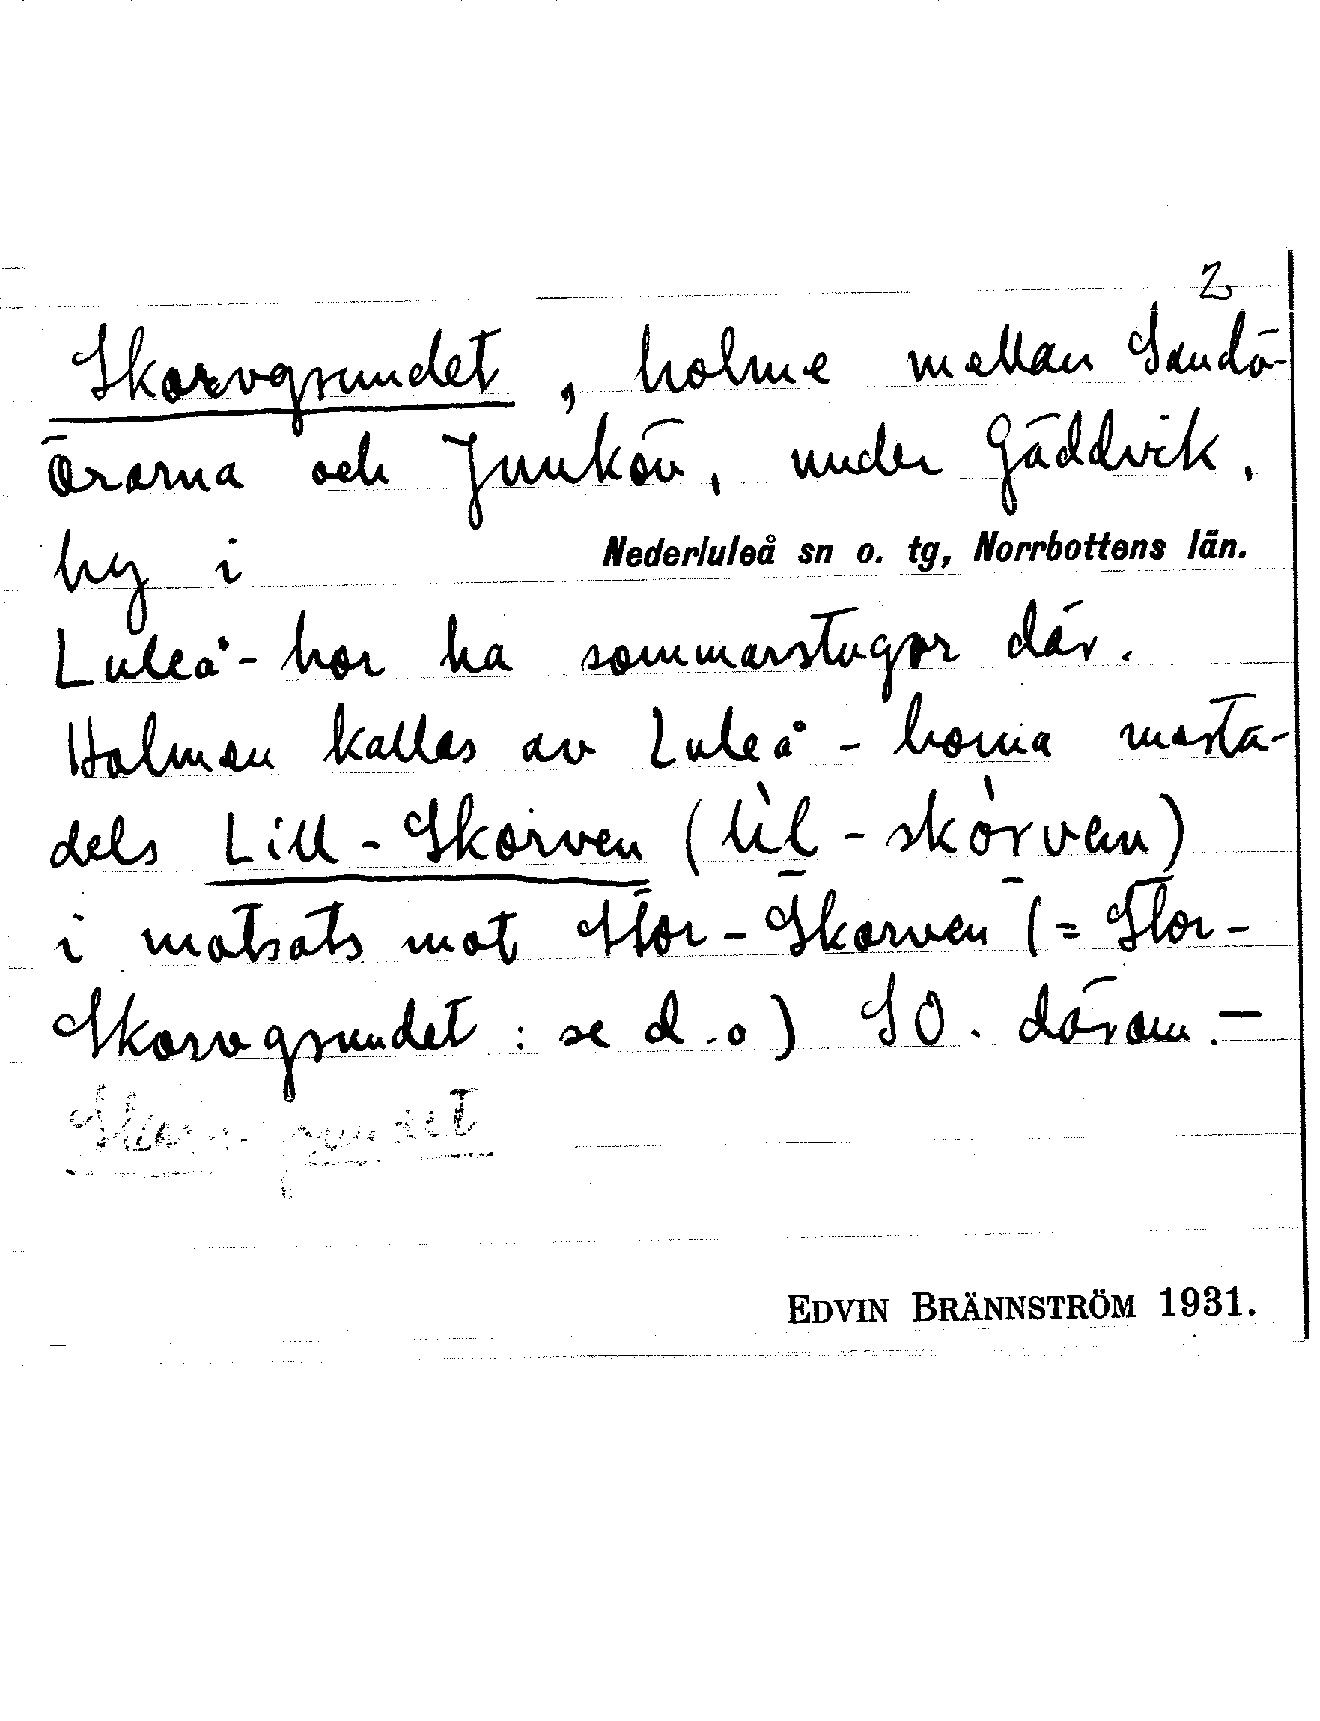 2
Skorvgrundet, holme mellan Sandö-
örarna och Junkön, under Gäddvik,
hy i Nederluleå sn o. tg, Norrbottens län.
Luleå-bor ha sommarstugor där.
Holmen kallas av Luleå-borna mesta-
dels Lill-Skorven (lìl-skòrven)
i motsats mot Stor-Skorven (= Stor-
Skorvgrundet: se d.o) SO. därom.—
Skorvgrundet
EDVIN BRÄNNSTRÖM 1931.